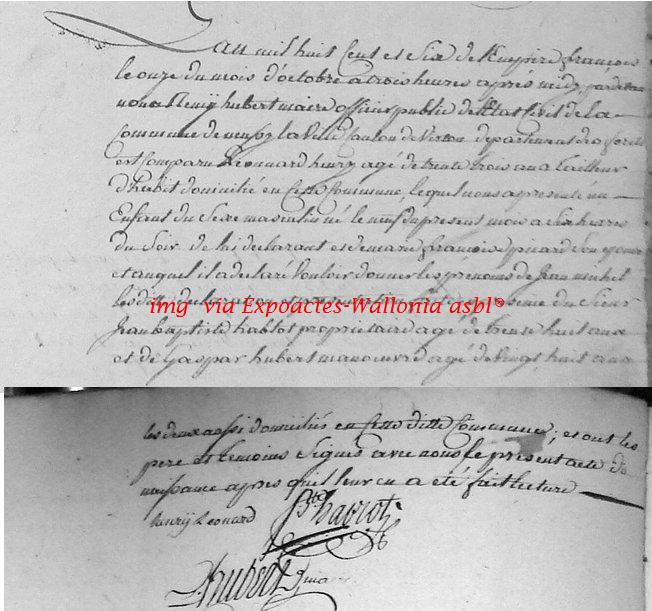 L'an mil huit Cent et Six de l'Empire françois
le onze du mois d'octobre a trois heures après midy, pardevant
nous Remÿ hubert maire officier public de l'Etat Civil de la
Commune de la Ville Canton de Virton departement des forets
est Comparu Léonnard henry agé de trente trois ans tailleur
D'habit domicilié en Cette Commune, lequel nous a presenté un
Enfant du Sexe masculin né le neuf du present mois a Six heures
du Soir de lui declarant et de marie françoise picard Son epouse
et auquel il a declaré Vouloir donner les prenoms de Jean michel
les dittes declaration et presentation du Sieur
img via Expoactes-Wallonia asbl®
Jean baptiste propriétaire agé de trente huit ans
et de Gaspar hubert manoeuvre agé de Vingt huit ans
les deux aussi domiciliés en Cette ditte Commune; et ont les
pere et temoins Signés avec nous le présent acte de
naissance apres qu'il leur en a été fait lecture
henrÿ Léonard
hubert